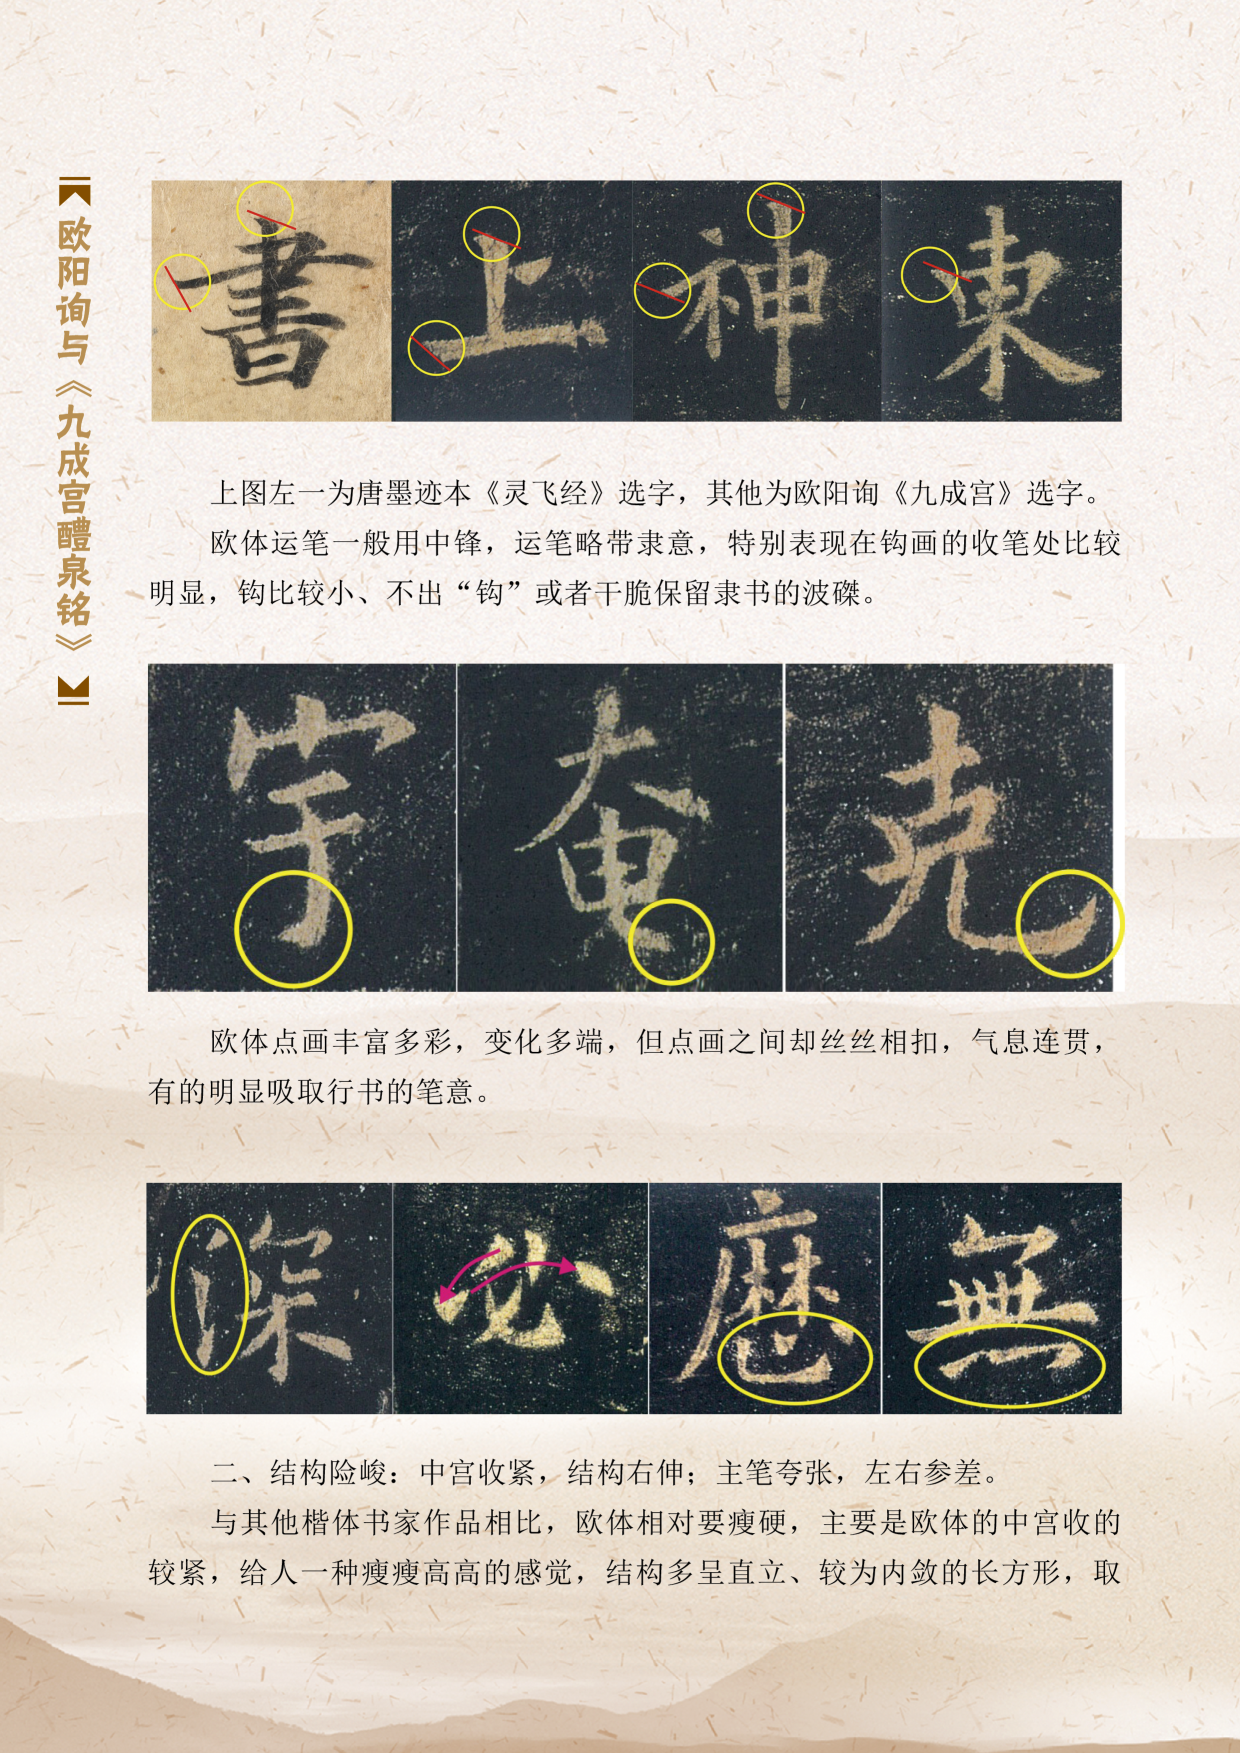 欧阳询与《九成宫醴泉铭》
書 上 神 東
上图左一为唐墨迹本《灵飞经》选字，其他为欧阳询《九成宫》选字。
欧体运笔一般用中锋，运笔略带隶意，特别表现在钩画的收笔处比较
明显，钩比较小、不出“钩”或者干脆保留隶书的波磔。
宇 奄 克
欧体点画丰富多彩，变化多端，但点画之间却丝丝相扣，气息连贯，
有的明显吸取行书的笔意。
深 必 麽 無
二、结构险峻：中宫收紧，结构右伸；主笔夸张，左右参差。
与其他楷体书家作品相比，欧体相对要瘦硬，主要是欧体的中宫收的
较紧，给人一种瘦瘦高高的感觉，结构多呈直立、较为内敛的长方形，取